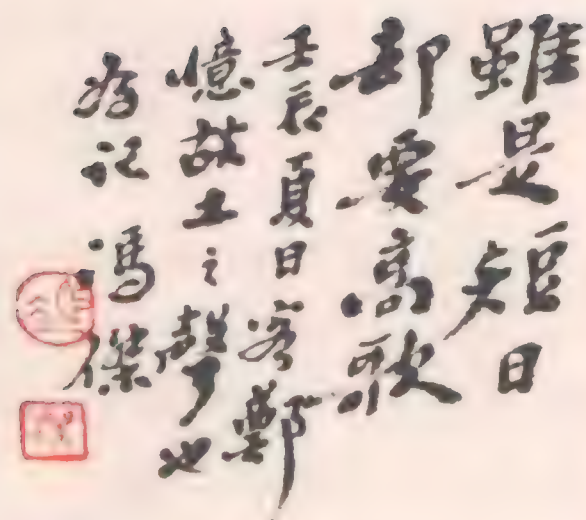 雖是短日
却要高歌
壬辰夏日客鄭
憶故土之聲也
為記 馮傑